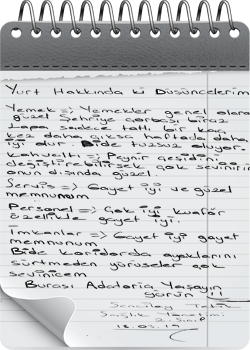 Yurt Hakkında ki Düşüncelerim
Yemek => Yemekler genel olarak
güzel Şehriye çorbası biraz
Lapa sadece tatlı bir kaç
kez daha çıksa haftada daha
iyi olur. Bide tuzsuz oluyor.
Kahvaltı => Peynir çeşidini
değiştirebilirsek çok sevinirim
onun dışında güzel.
Servis => Gayet iyi ve güzel
memnunum
Personel => Çok iyi kuaför
özellikle gayet iyi.
İmkanlar => Gayet iyi gayet
memnunum
Bide koridorda ayaklarını
sürtmeden yürüseler çok
sevinicem
Burası Adatoria Yaşayın
Görün !!!
Sağlık Yönetimi
2. Sınıf
18.05.19